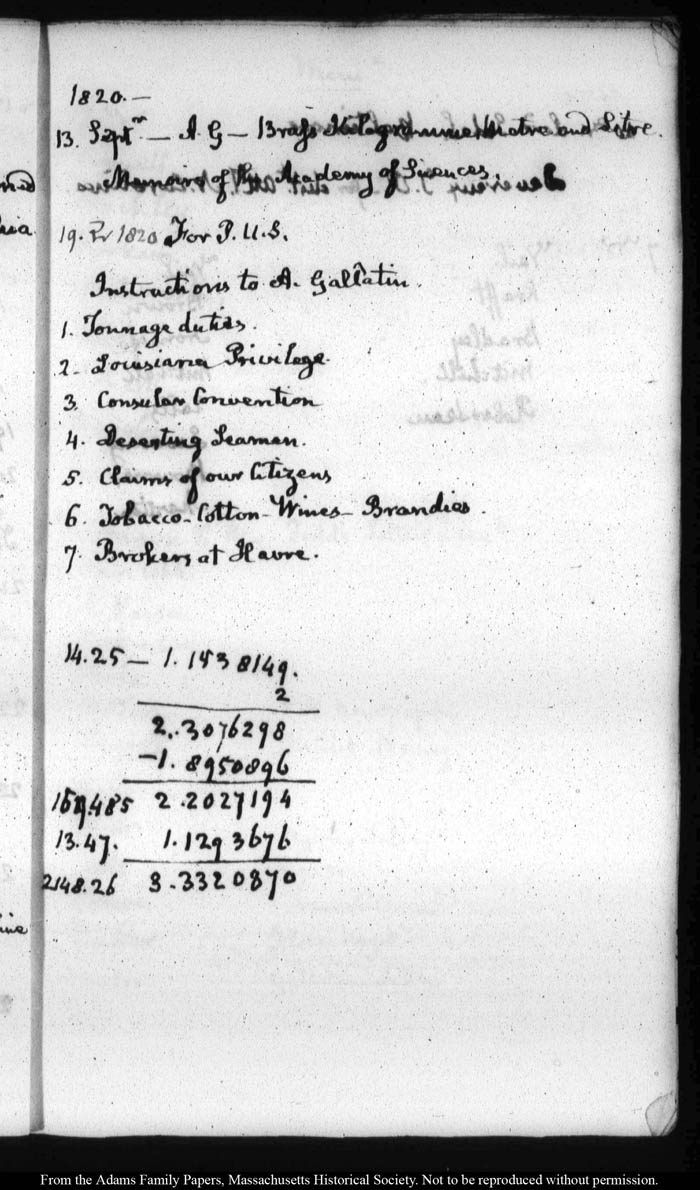 1820.—
13. Septr — A. G — Brass Kilogramme Metre and Litre.
Memoirs of the Academy of Sciences.
19. 1820 For P. U.S.
Instructions to A. Gallatin.
1. Tonnage duties.
2. Louisiana Privilege.
3. Consular Convention
4. Deserting Seamen.
5. Claims of our Citizens
6. Tobacco - Cotton - Wines - Brandies.
7. Brokers at Havre.
14.25 — 1.1538149.
2
2.3076298
-1.8950896
159.485 2.2027194
13.47. 1.1293676
2148.26 3.3320870
From the Adams Family Papers, Massachusetts Historical Society. Not to be reproduced without permission.